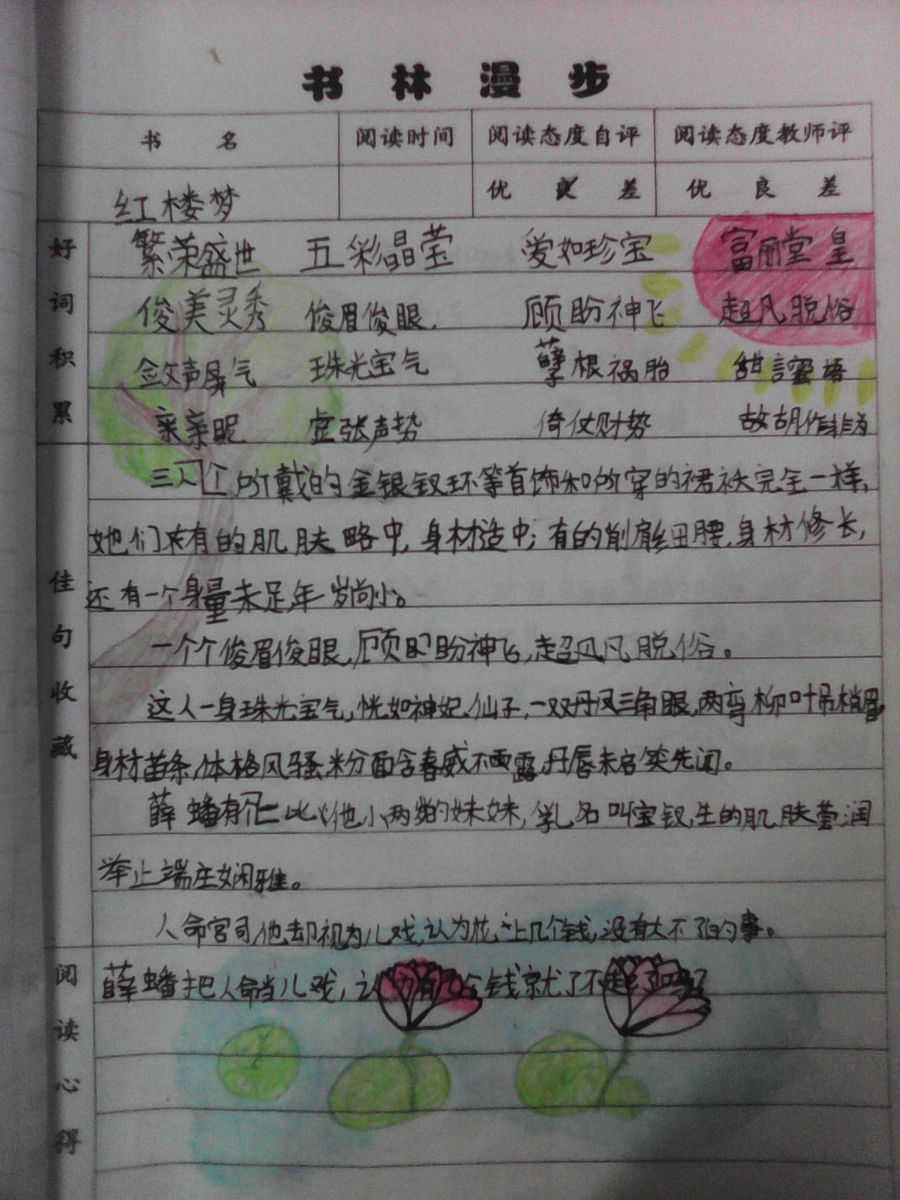 书林漫步
书名 阅读时间 阅读态度自评 阅读态度教师评
红楼梦 优 良 差 优 良 差
好词积累
繁荣盛世 五彩晶莹 爱如珍宝 富丽堂皇
俊美灵秀 俊眉俊眼. 顾盼神飞 超凡脱俗
敛声屏气 珠光宝气 孽根祸胎 甜言蜜语
亲亲昵 虚张声势 倚仗财势 故胡作非为
佳句收藏
三个 所戴的金银钗环等首饰和所穿的裙袄完全一样,
她们有的肌肤略中,身材适中;有的削肩细腰,身材修长,
还有一个身量未足,年岁尚小。
一个个俊眉俊眼,顾盼神飞,超凡脱俗。
这人一身珠光宝气,恍如神妃、仙子,一双丹凤三角眼,两弯柳叶吊梢眉
身材苗条,体格风骚,粉面含春威不露,丹唇未启笑先闻。
薛蟠有个比他小两岁的妹妹,乳名叫宝钗,生的肌肤莹润
举止端庄娴雅。
人命官司,他却视为儿戏,认为花上几个钱,没有大不了的事。
阅读心得
薛蟠把人命当儿戏,认为有几个钱就了不起了吗?